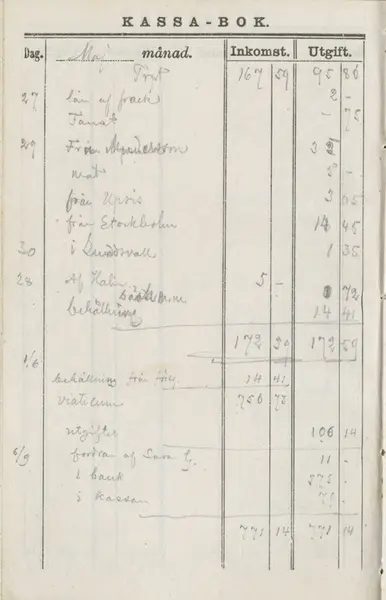 KASSA-BOK.
Dag. Maj månad. Inkomst. Utgift.
167 59 95 86
27 lån af frack 2 -
- 75
29 Från
mat 2 -
från 3
från Stockholm 14 45
30 i Sundsvall 1 35
28 Af 5 - 72
behållning 14 41
172 59 172 59
1/6
behållning från föreg. 14 41
viaticum 756 73
utgifter 106 14
6/9 fordran af Sara 11 -
i bank 575 -
i kassan 79 -
771 14 771 14